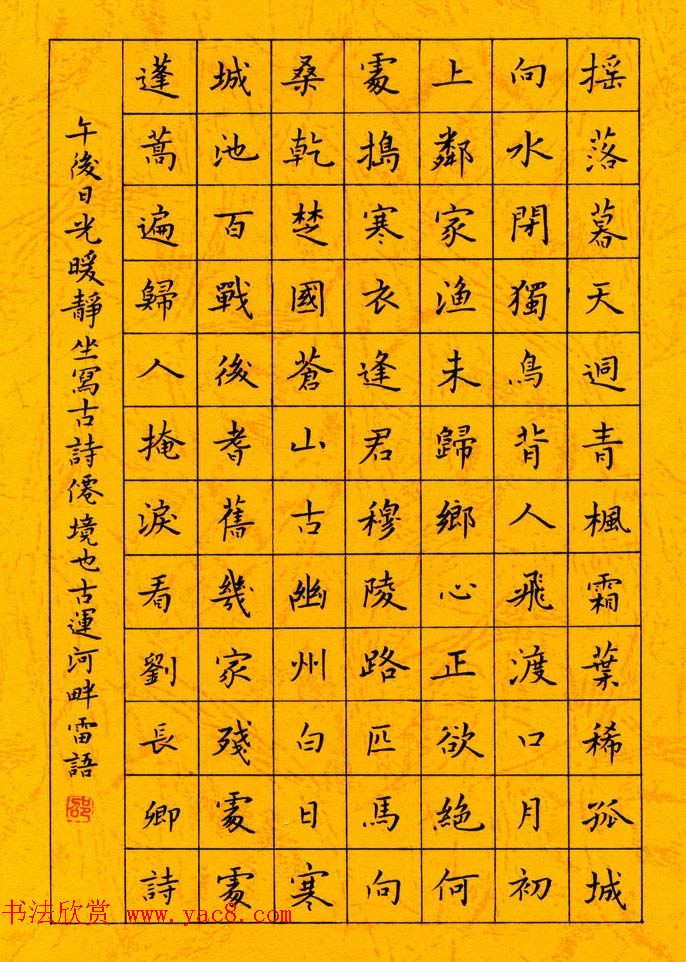 摇落暮天迥青楓霜葉稀孤城
向水閉獨鳥背人飛渡口月初
上鄰家漁未歸鄉心正欲絕何
處搗寒衣逢君穆陵路匹馬向
桑乾楚國蒼山古幽州白日寒
城池百戰後耆舊幾家殘處處
蓬蒿遍歸人掩淚看劉長卿詩
午後日光暖靜坐寫古詩僊境也古運河畔雷語
书法欣赏 www.yac8.com